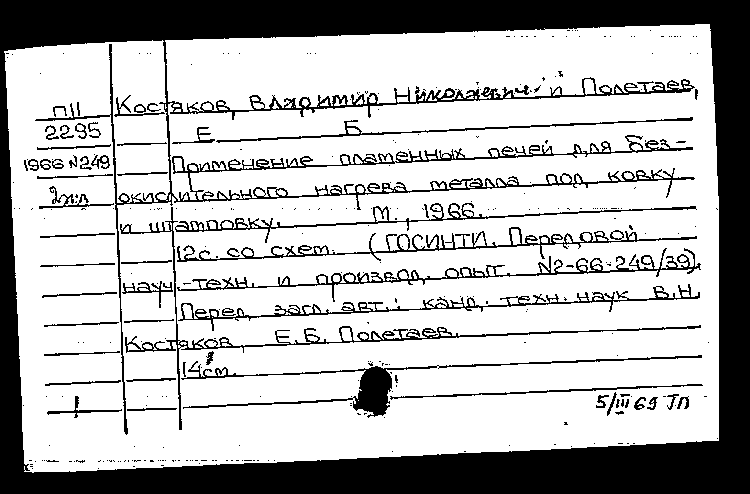 П11 Костяков, Владимир Николаевич и Полетаев,
2295 Е Б
1966 №249 Применение пламенных печей для без-
2жд окислительного нагрева металла под ковку
и штамповку. М., 1966.
12с. со схем. (ГОСИНТИ. Передовой
науч.-техн. и производ. опыт. №2-66-249/39).
Перед загл. авт.: канд. техн. наук В.Н.
Костяков, Е.Б. Полетаев.
14см.
1 5/III 69 ТП